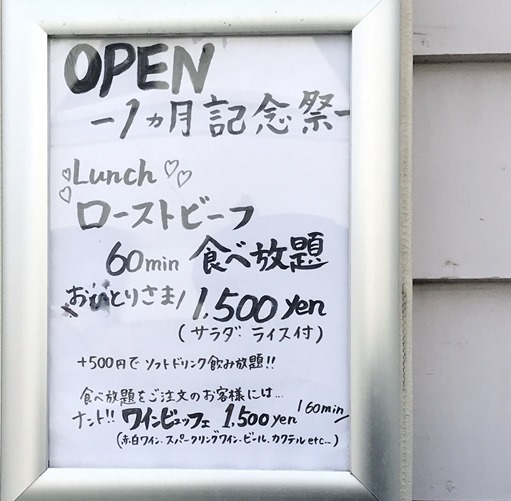 OPEN
-1ヵ月記念祭-
Lunch
ローストビーフ
60min 食べ放題
おひとりさま/ 1,500yen
(サラダ ライス付)
+500円で ソフトドリンク飲み放題!!
食べ放題をご注文のお客様には...
ナント!! ワインビュッフェ 1,500yen/60min
(赤白ワイン、スパークリングワイン、ビール、カクテル etc...)